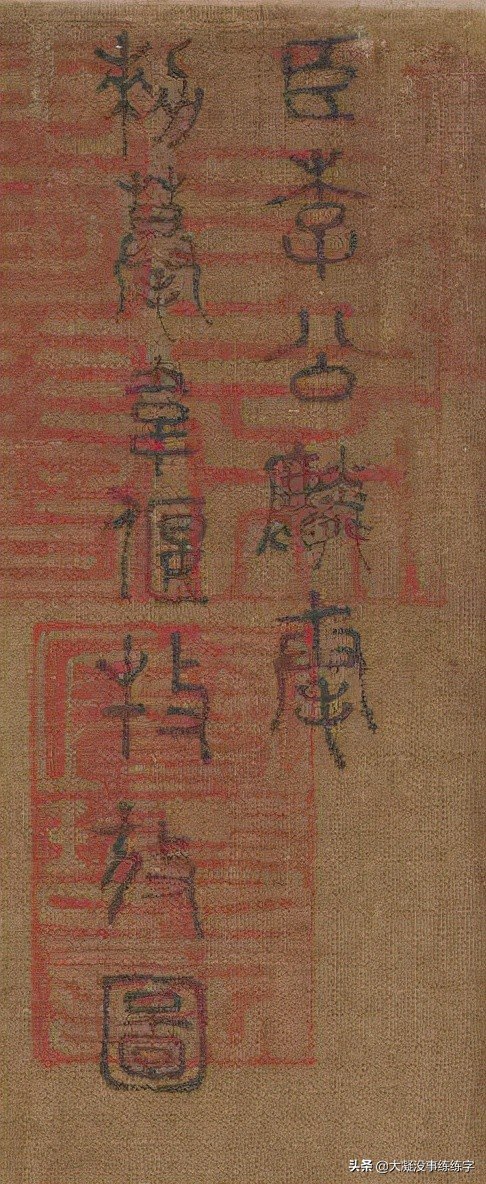 臣李公麟奉
勅摹韋偃牧放圖
头条 @大凝没事练练字